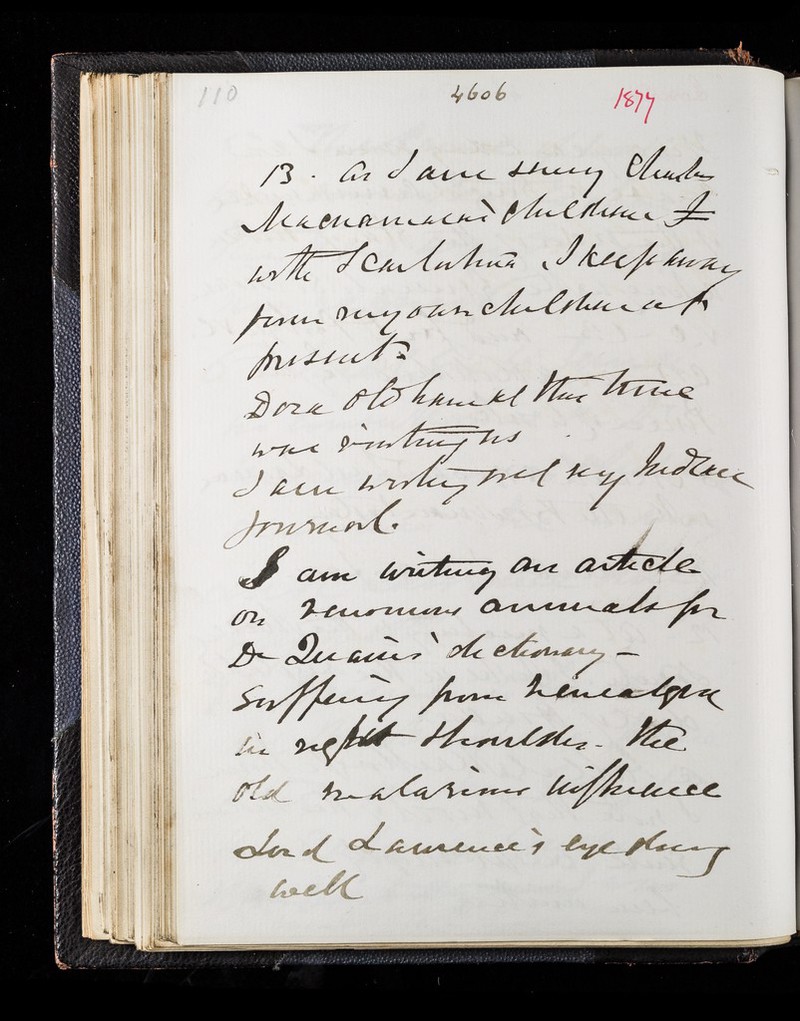 110 4606 1877
13. As I am seeing Charles
Macnamara's children
with Scarlatina I keep away
from my own children at
present.
Dora Oldham at this time
was visiting us
I am writing out my Indian
Journal.
I am writing an article
on venomous animals for
Dr Quain's dictionary -
Suffering from neuralgia
in right shoulder. The
old malarious influence
Lord Lawrence's eye doing
well